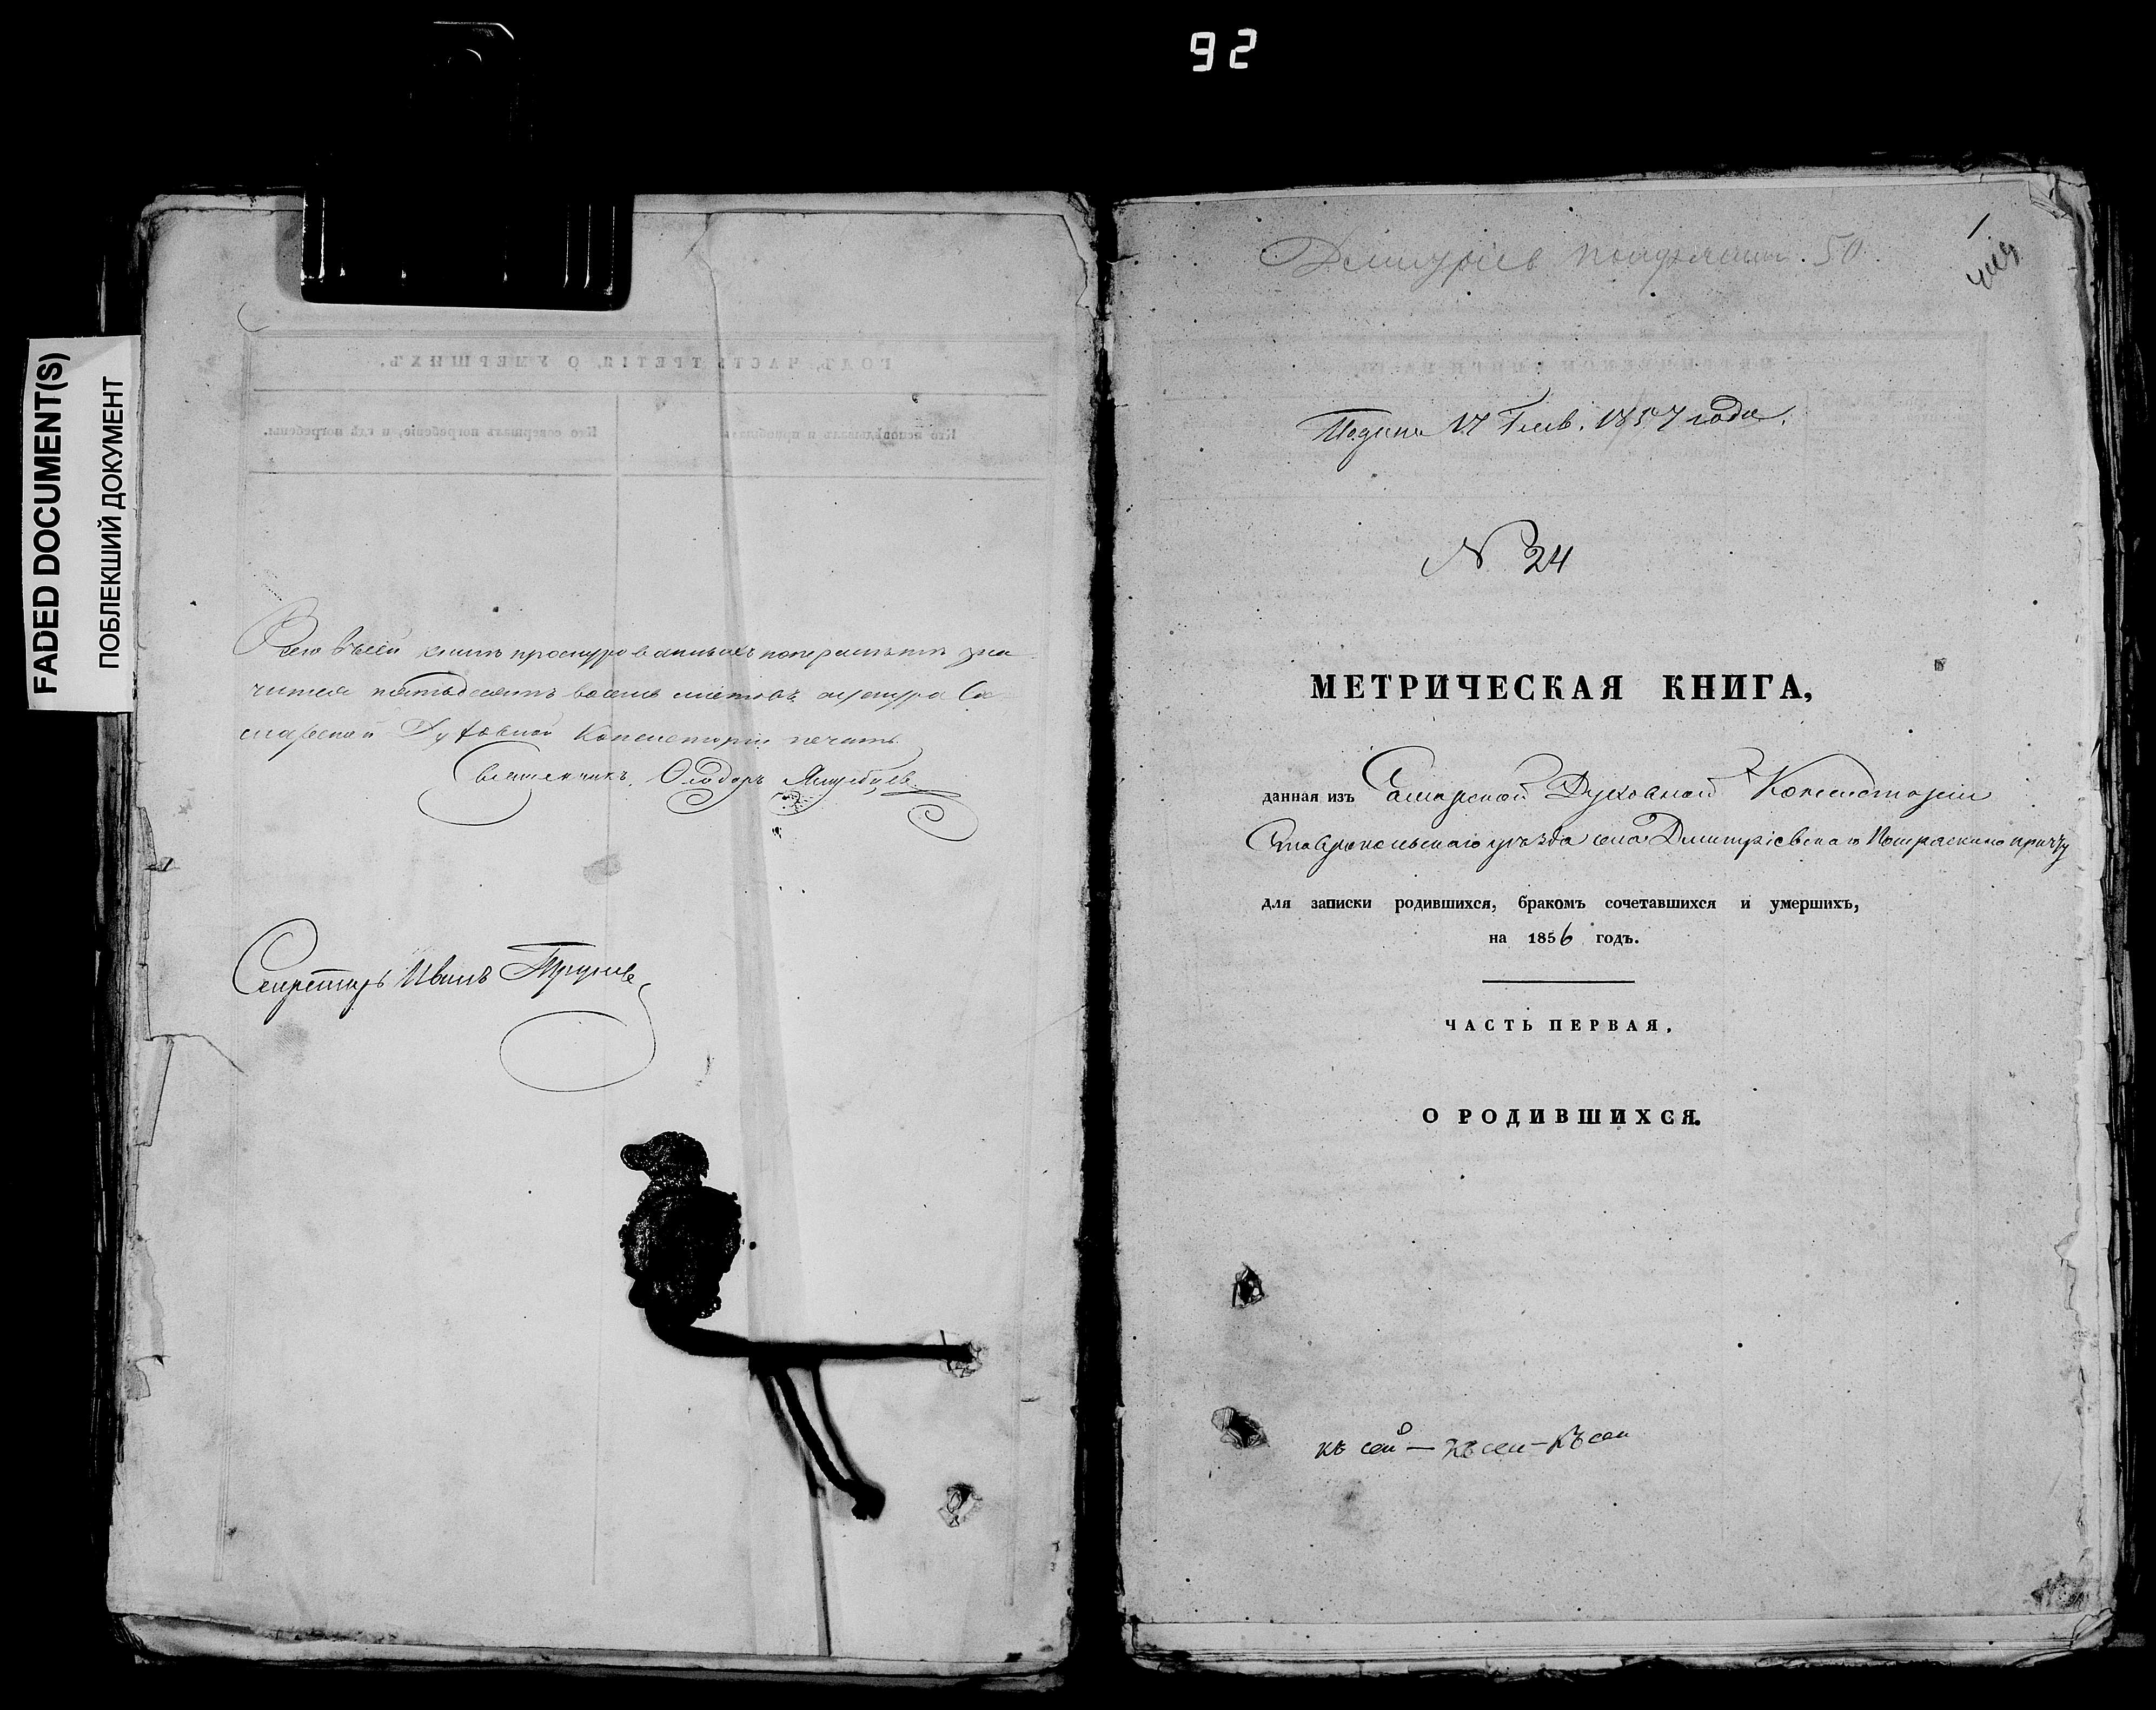 92
FADED DOCUMENT(S)
ПОБЛЕКШИЙ ДОКУМЕНТ
ГОДЪ, ЧАСТЬ ТРЕТІЯ, О УМЕРШИХЪ.
Кто исповѣдывалъ и пріобщалъ.
Кто совершалъ погребеніе, и гдѣ погребены.
Всего въ сей книгѣ прошнурованныхъ нопераментъ зна
чится пятьдесятъ восемь листовъ, а у шнура Са
марской Духовной Консисторіи печать.
Священникъ Ѳеодоръ
Секретарь Иванъ
1
50
17 Генв. 1857 года.
N 24
МЕТРИЧЕСКАЯ КНИГА,
данная изъ Самарской Духовной Консисторіи
Ставропольскаго уѣзда села Дмитріевскаго причту
для записки родившихся, бракомъ сочетавшихся и умершихъ,
на 1856 годъ.
ЧАСТЬ ПЕРВАЯ.
О РОДИВШИХСЯ.
къ сей – къ сей – къ сей